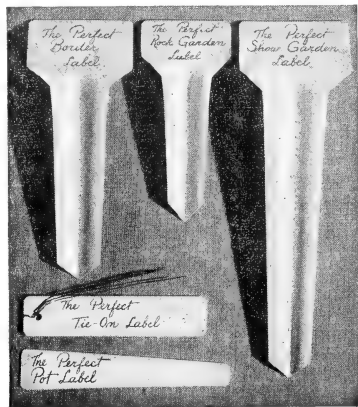 The Perfect
Border
Label.
The Perfect
Rock Garden
Label
The Perfect
Show Garden
Label.
The Perfect
Tie-On Label
The Perfect
Pot Label